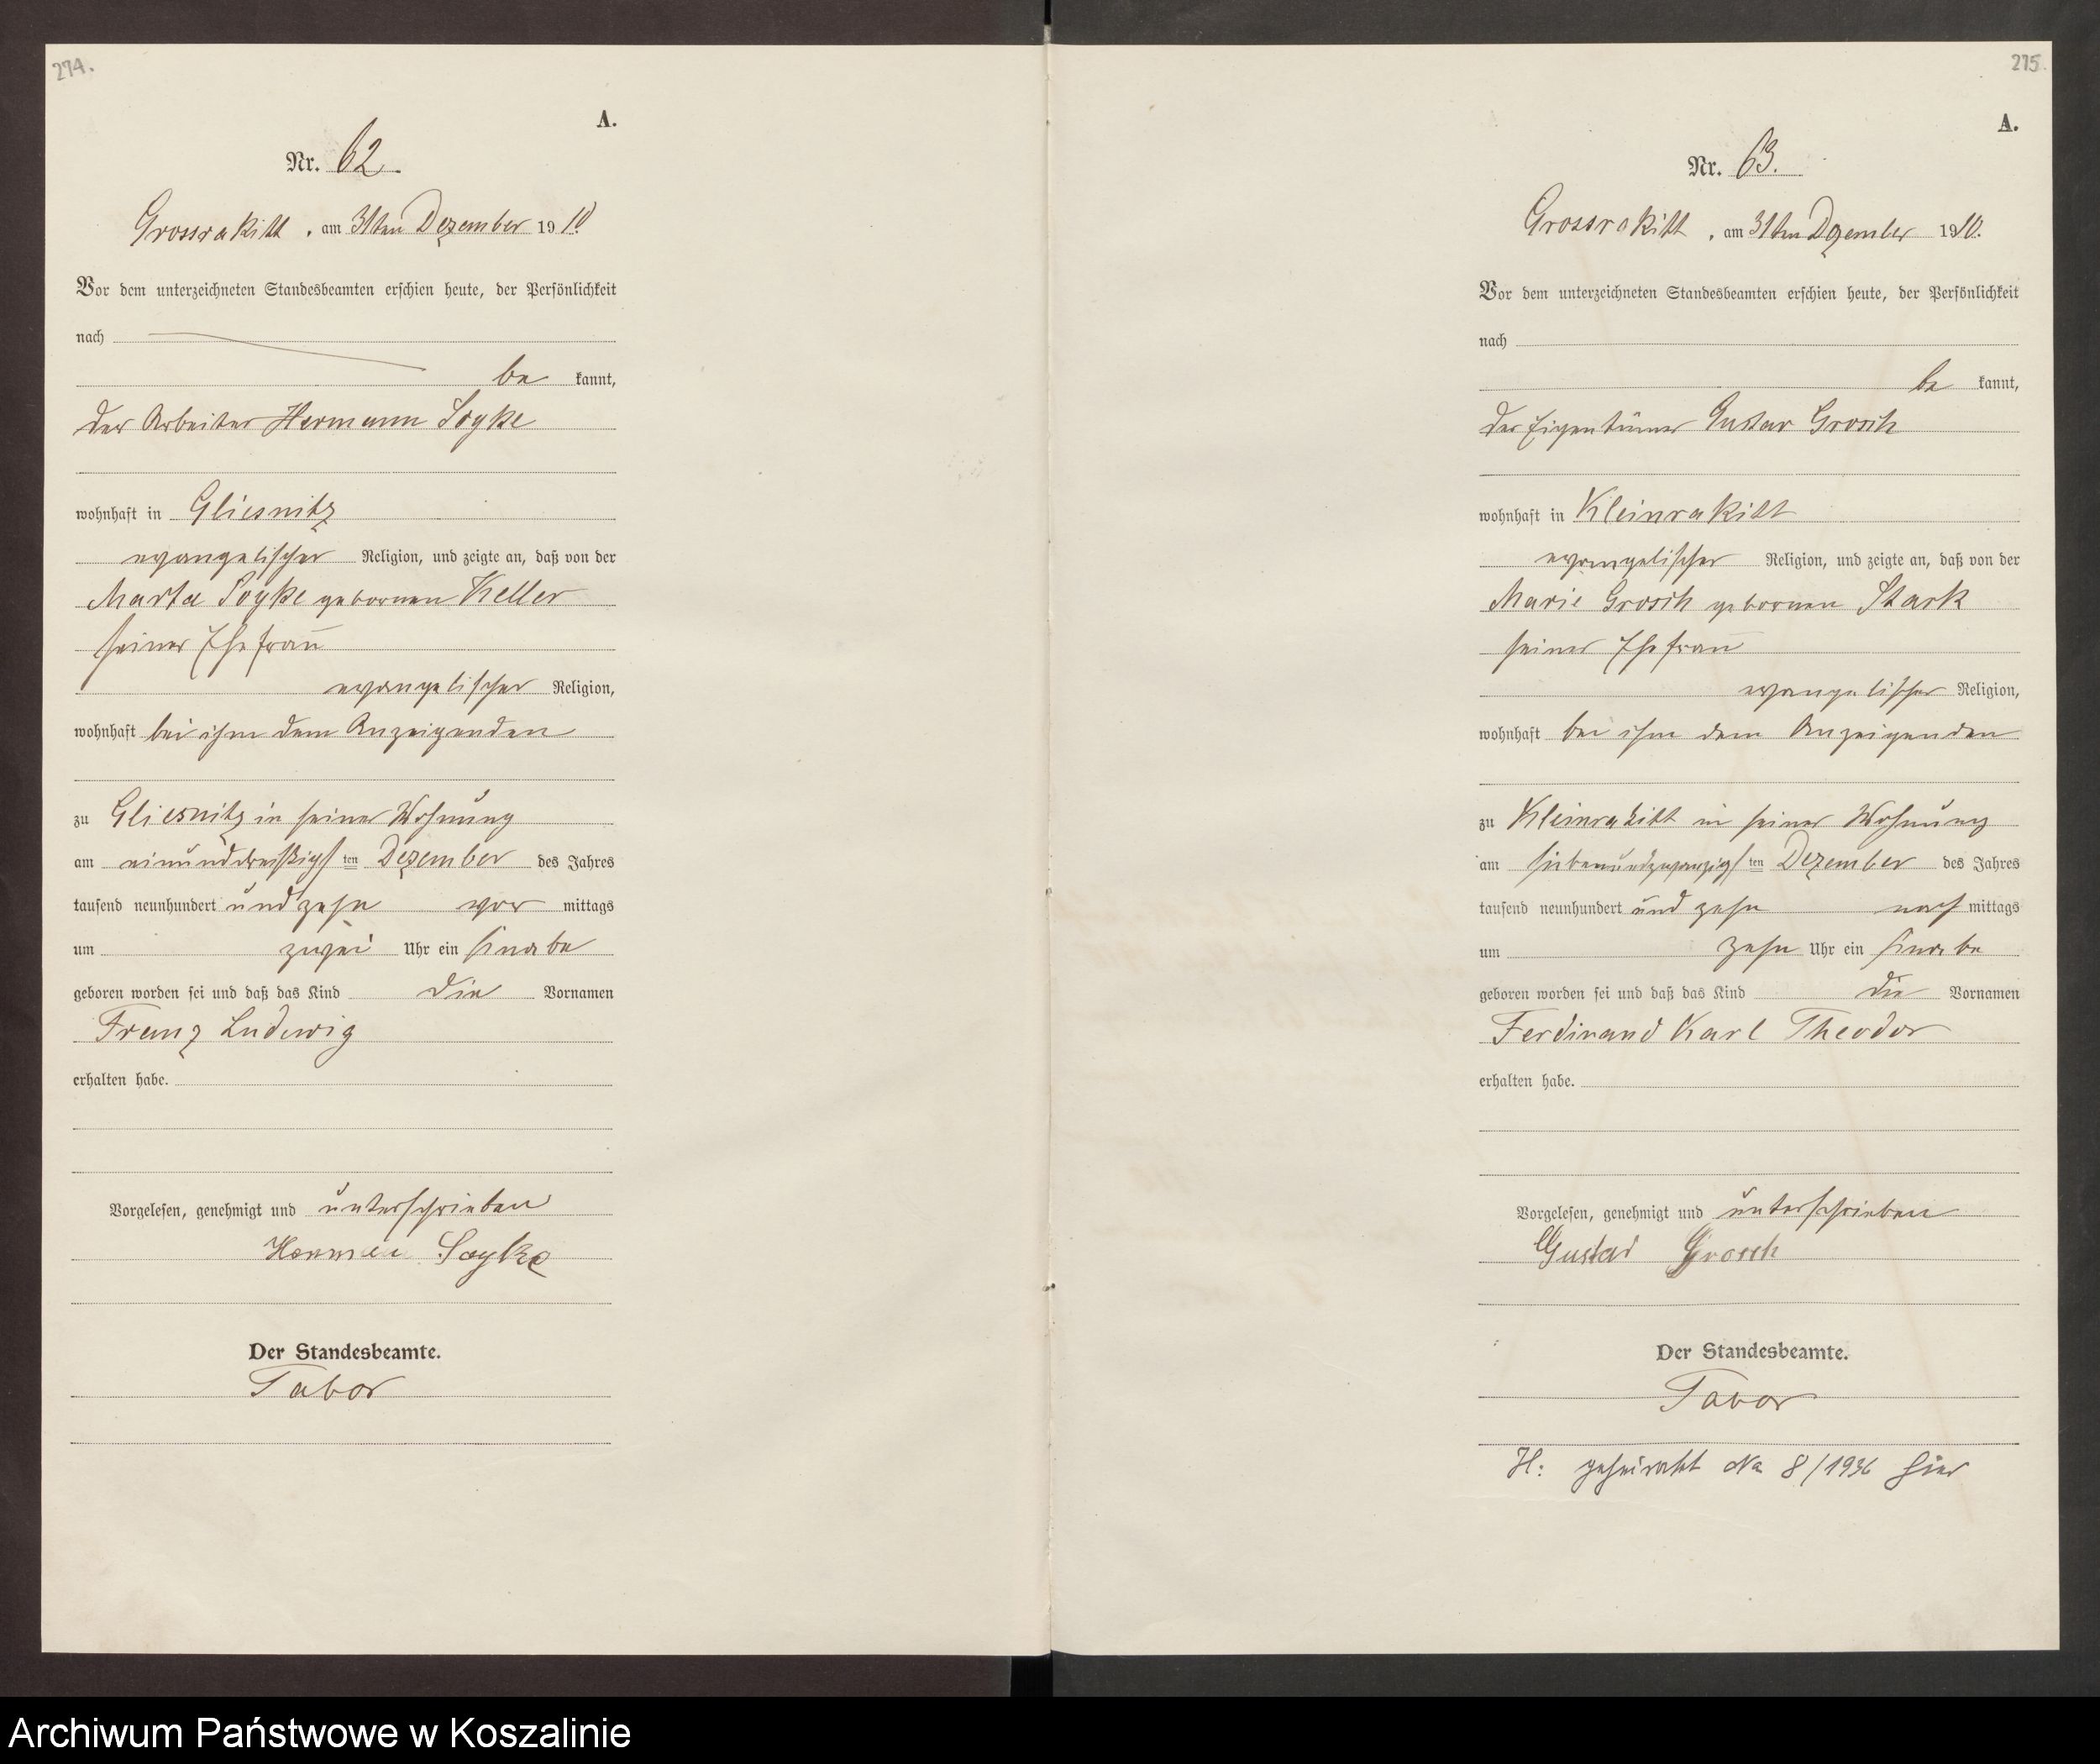 274.
A.
Nr. 62.
Grossrakitt, am 31ten Dezember 1910
Vor dem unterzeichneten Standesbeamten erschien heute, der Persönlichkeit
nach
be kannt,
der Arbeiter Hermann Soyke
wohnhaft in Gliesnitz
evangelischer Religion, und zeigte an, daß von der
Marta Soyke geborenen Keller
seiner Ehefrau
evangelischer Religion,
wohnhaft bei ihm dem Anzeigenden
zu Gliesnitz in seiner Wohnung
am einunddreißigsten Dezember des Jahres
tausend neunhundert und zehn vor mittags
um zwei Uhr ein Knabe
geboren worden sei und daß das Kind die Vornamen
Franz Ludwig
erhalten habe.
Vorgelesen, genehmigt und unterschrieben
Soyke
Der Standesbeamte.
Tabor
275.
A.
Nr. 63.
Grossrakitt, am 31ten Dezember 1910.
Vor dem unterzeichneten Standesbeamten erschien heute, der Persönlichkeit
nach
be kannt,
der Eigentümer Gustav Grosch
wohnhaft in Kleinrakitt
evangelischer Religion, und zeigte an, daß von der
Marie Grosch geborenen Stark
seiner Ehefrau
evangelischer Religion,
wohnhaft bei ihm dem Anzeigenden
zu Kleinrakitt in seiner Wohnung
am siebenundzwanzigsten Dezember des Jahres
tausend neunhundert und zehn nach mittags
um zehn Uhr ein Knabe
geboren worden sei und daß das Kind die Vornamen
Ferdinand Karl Theodor
erhalten habe.
Vorgelesen, genehmigt und unterschrieben
Gustav Grosch
Der Standesbeamte.
Tabor
H: geheiratet No 8/1936 hier
Archiwum Państwowe w Koszalinie